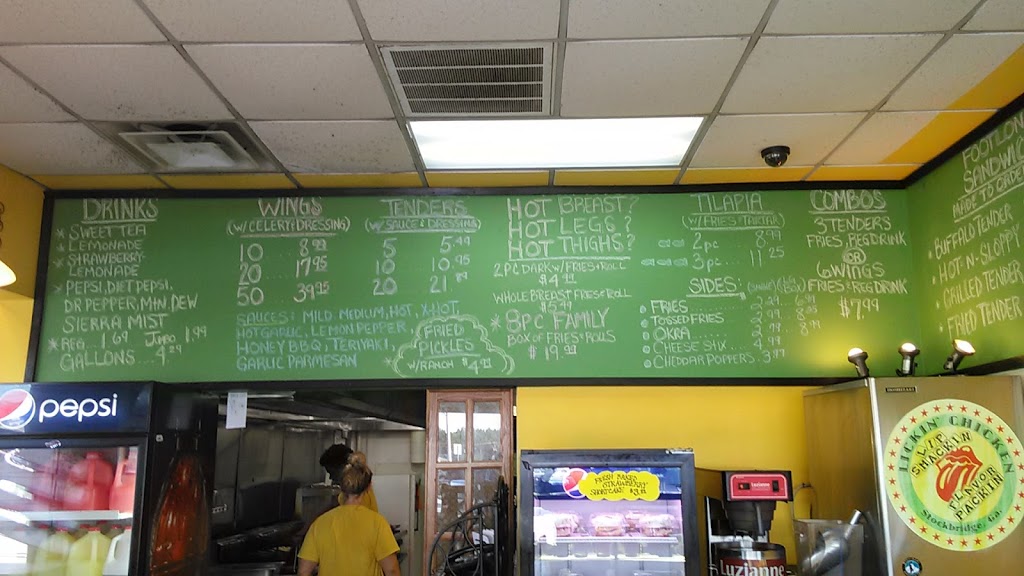 DRINKS
SWEET TEA
LEMONADE
STRAWBERRY
LEMONADE
PEPSI, DIET PEPSI,
DR PEPPER, MTN DEW
SIERRA MIST
REG. 1.69 JUMBO 1.99
GALLONS... 4.29
WINGS
(W/CELERY & DRESSING)
10 8.99
20 17.95
50 39.95
TENDERS
(W/SAUCE & DRESSING)
5 5.49
10 10.95
20
SAUCES: MILD, MEDIUM, HOT, X-HOT,
HOT GARLIC, LEMON PEPPER,
HONEY BBQ, TERIYAKI,
GARLIC PARMESAN
FRIED
PICKLES
W/RANCH
HOT BREAST?
HOT LEGS?
HOT THIGHS?
2 PC DARK W/FRIES & ROLL
WHOLE BREAST FRIES & ROLL
8PC FAMILY
BOX OF FRIES & ROLLS
TILAPIA
2pc 8.99
3pc 11.25
SIDES:
FRIES
TOSSED FRIES
OKRA
CHEESE STIX
CHEDDAR POPPERS 3.99
COMBOS
3 TENDERS
FRIES, REG DRINK
OR
6 WINGS
FRIES & REG DRINK
$7.99
FOOTLONG
SANDWICH
MADE TO ORDER
BUFFALO TENDER
HOT N SLOPPY
GRILLED TENDER
FRIED TENDER
pepsi
FRESH BAKED
STRAWBERRY
SHORTCAKE
Luzianne
LICKIN' CHICKEN
LIP
SMACKIN
FLAVOR
PACKIN
Stockbridge, Ga.